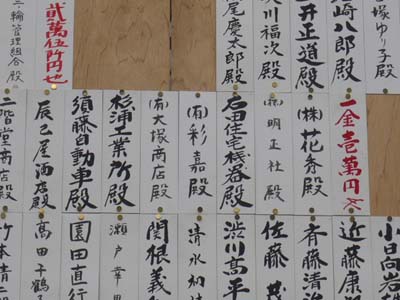 塚ゆり子殿
崎八郎殿
井正道殿
川福次殿
尾慶太郎殿
貳萬伍阡円也
三輪管理組合殿
一金壱萬円也
(株)花秀殿
(株)明正社殿
戸田住宅機器殿
(有)彩嘉殿
(有)大塚商店殿
杉浦工業所殿
須藤自動車殿
辰巳屋酒店殿
二階堂商店殿
小日向岩
近藤康
斉藤清
佐藤
渋川高平
清水
関根義
瀬戸幸
園田直行
高田千鶴
竹本清二